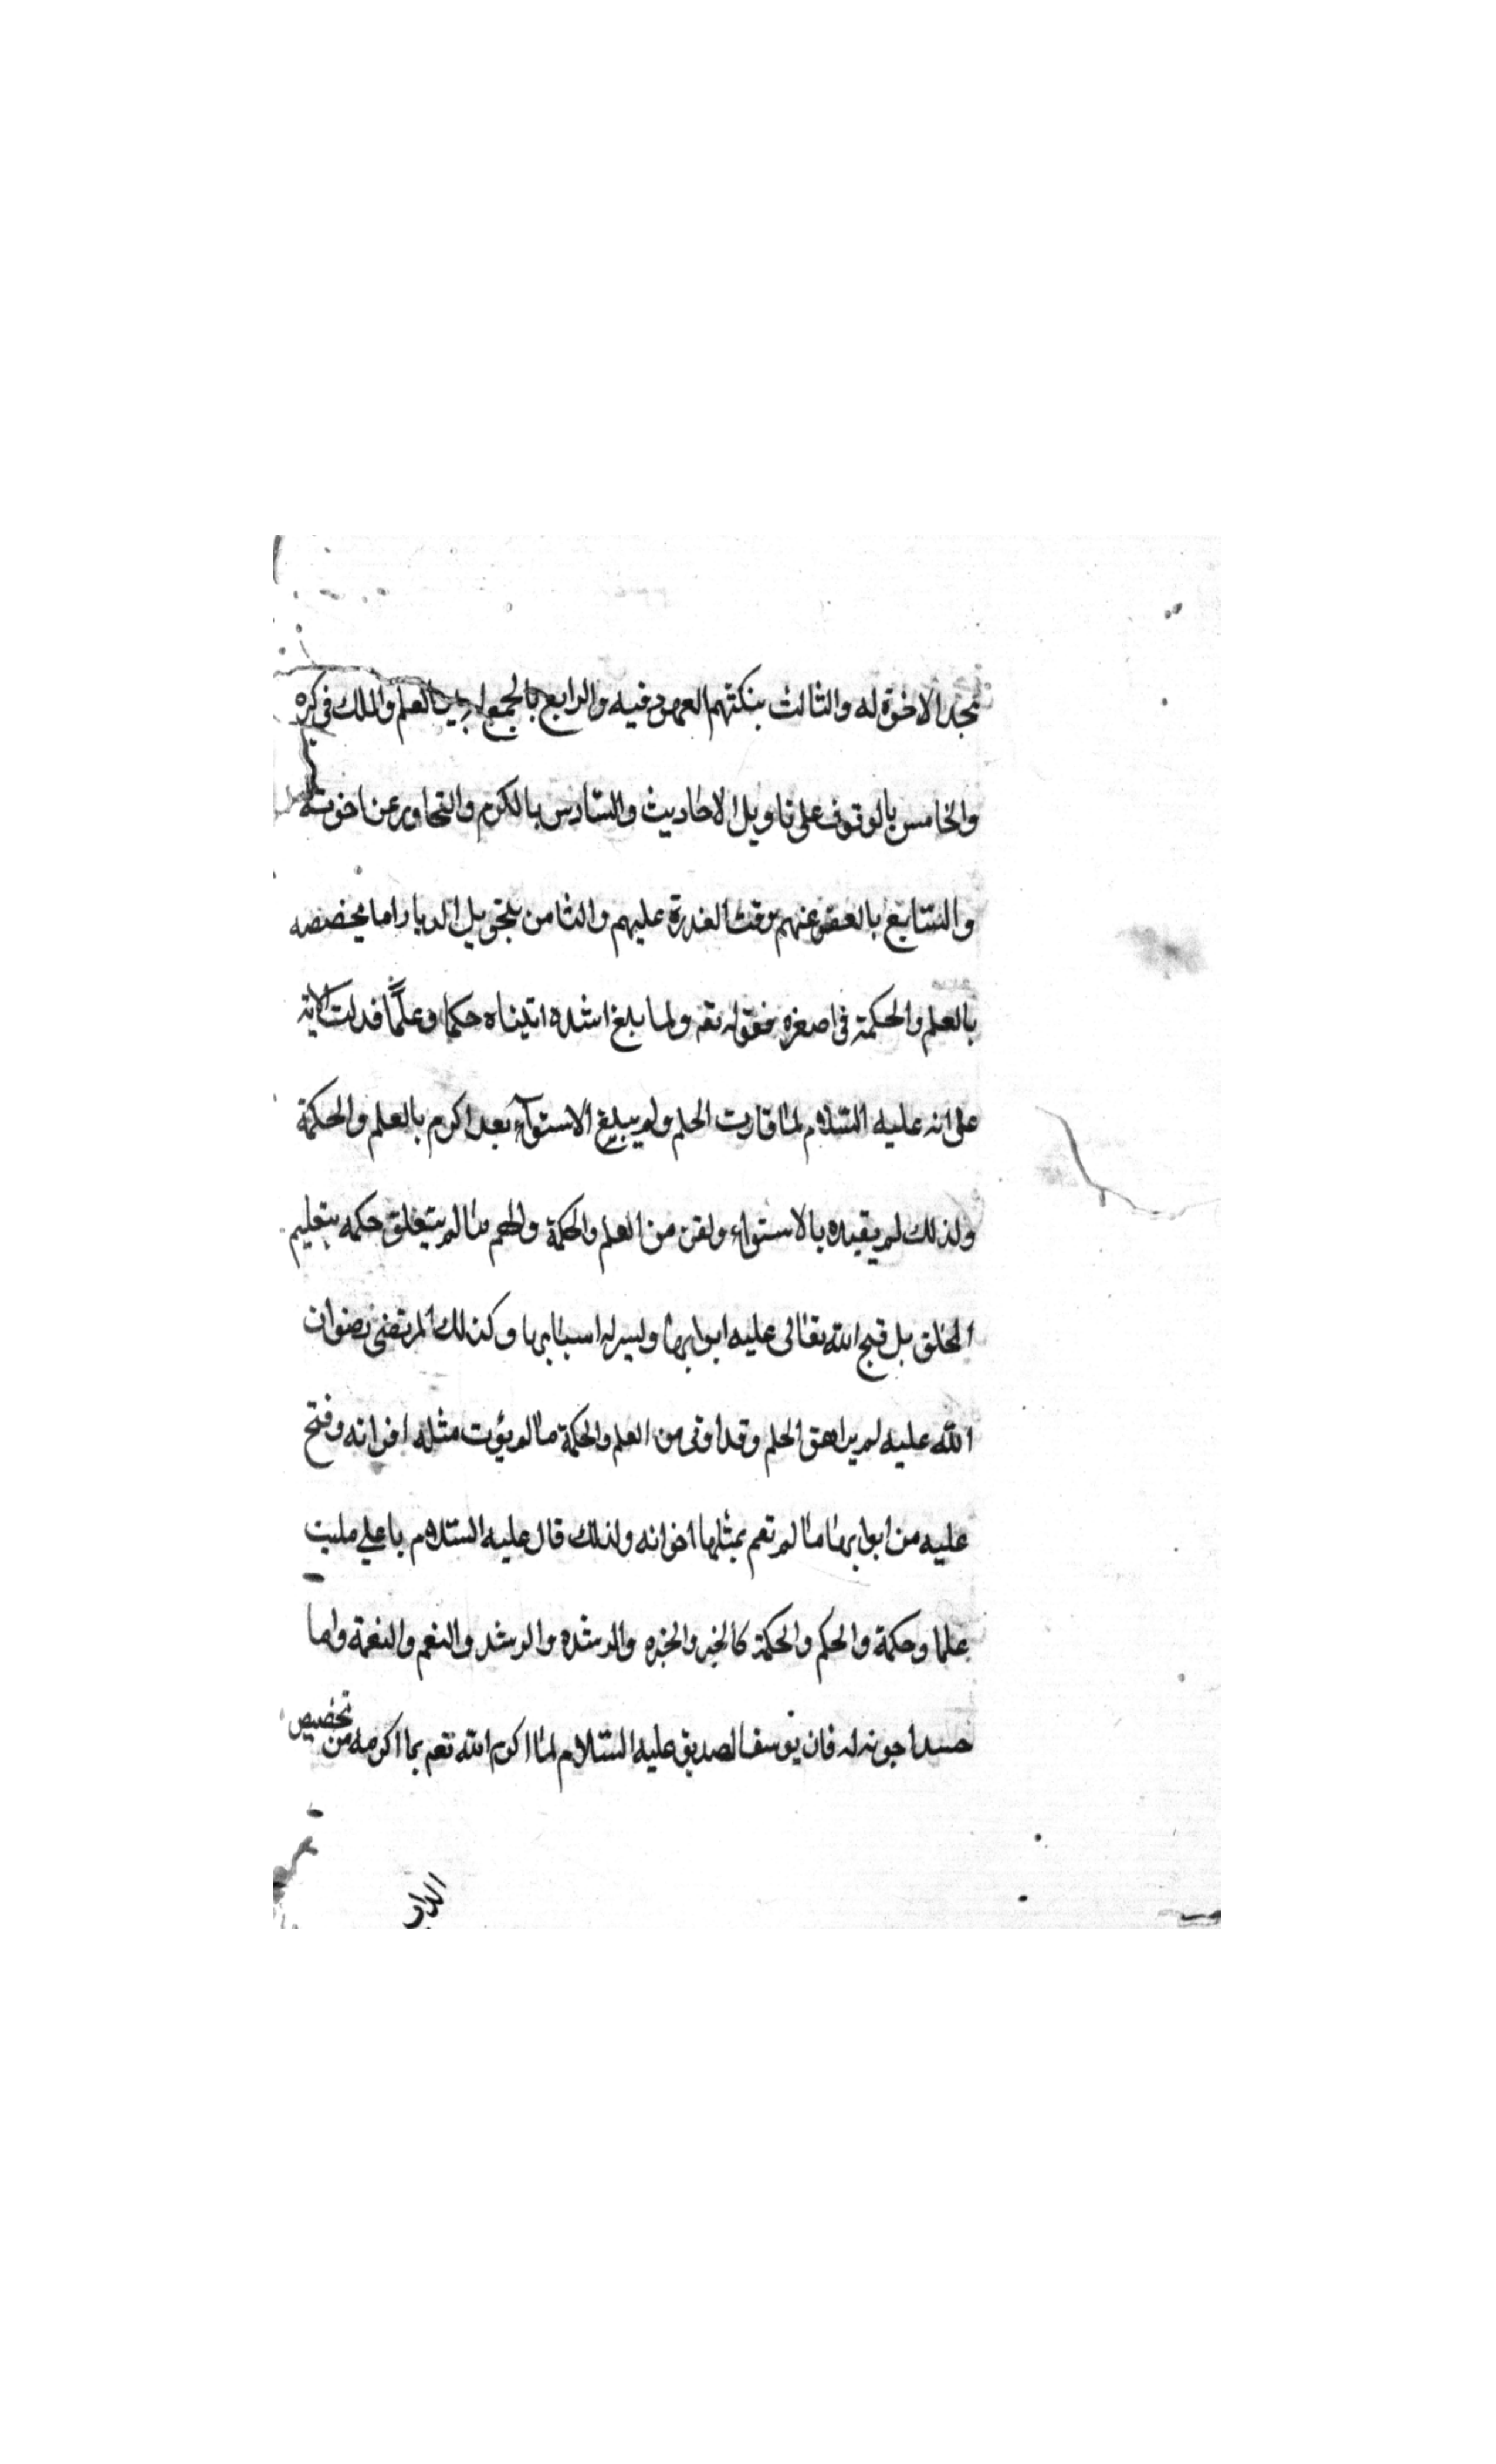 نجد الاخوة له والثالث بنكثهم العهود فيه والرابع بالجمع له بين العلم والملك في كبره
والخامس بالوقوف على تاويل الاحاديث والسّادس بالكرم والتجاوز عن اخوته
والسّابع بالعفو عنهم وقت القدرة عليهم والثامن بتحويل الديار اما تخصصه
بالعلم والحكمة في اصغره فقوله تعه ولما بلغ اشده اتيناه حكما وعلمًا فدلت الاية
على انه عليه السّلام لما قارب الحلم ولم يبلغ الاستوآء بعد اكرم بالعلم والحكمة
ولذلك لم يقيده بالاستواء ولقن من العلم والحكمة والهم مالم يتعلق حكمه بتعليم
الخلق بل فتح الله تعالى عليه ابوابها ويسر له اسبابها وكذلك المرتضى رضوان
الله عليه لم يراهق الحلم وقد اوتى من العلم والحكمة مالم يؤت مثله اقرانه وفتح
عليه من ابوابها مالم تعم بمثلها اخوانه ولذلك قال عليه السّلام يا علي مليت
علما وحكمة والحكم والحكمة كالخبر والخبره والرشده والرشد والنعم والنعمة واما
حسد اخوته له فان يوسف الصديق عليه السّلام لما اكرم الله تعم بما اكرمه من تخصيص